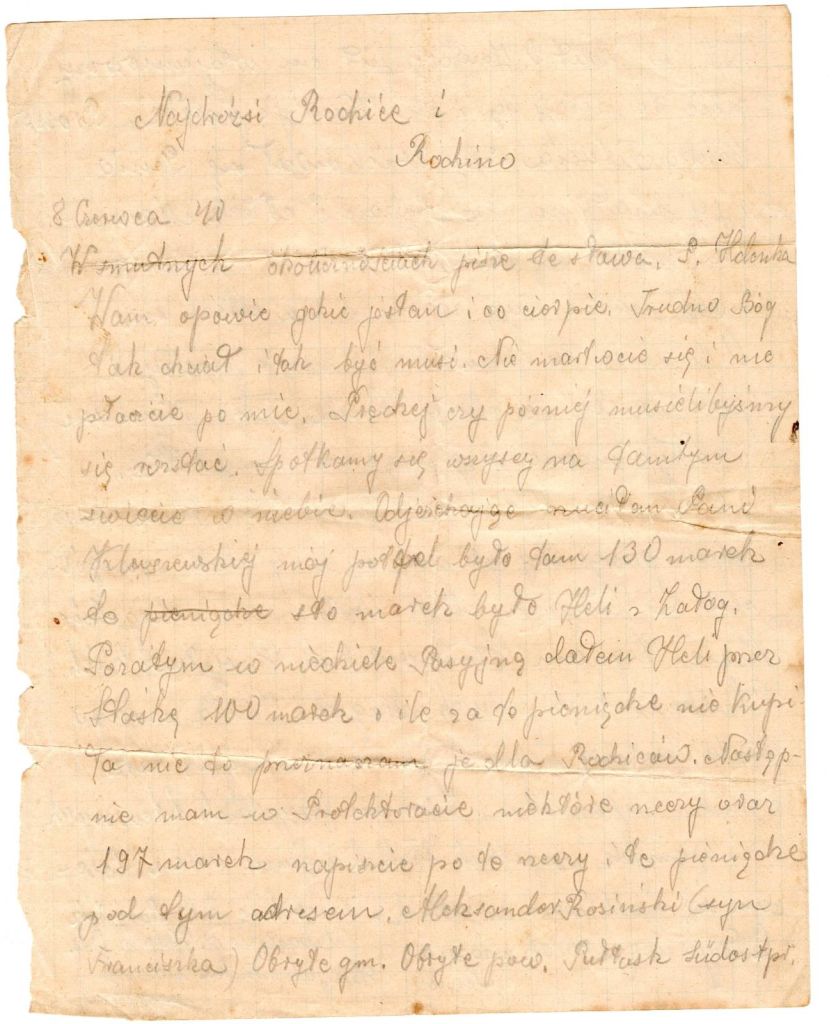 Najdrożsi Rodzice i
Rodzino
8 Czerwca 40
W smutnych okolicznościach piszę te słowa. P. Helenka
Wam opowie gdzie jestem i co cierpię. Trudno Bóg
tak chciał i tak być musi. Nie martwcie się i nie
płaczcie po mnie. Prędzej czy później musielibyśmy
się rozstać. Spotkamy się wszyscy na tamtym
świecie w niebie. Odjeżdżając Pani
mój portfel było tam 130 marek
te pieniądze sto marek było Heli z Załog.
Pozatym w niedziele Pasyjną dałem Heli przez
Staśkę 100 marek o ile za te pieniądze nie kupi-
ła nic to przeznaczam je dla Rodziców. Następ-
nie mam w niektóre rzeczy oraz
197 marek napiszcie po te rzeczy i te pieniądze
pod tym adresem. Aleksander Rosiński (syn
Franciszka) Obryte gm. Obryte pow. Pułtusk Südostpr.